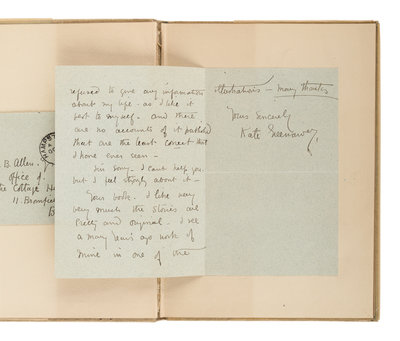 refused to give any information
about my life - as I like it
best to myself - and there
are no accounts of it published
that are the least correct that
I have ever seen -
I'm sorry - I can't help you
but I feel strongly about it -
Your book - I like very
very much the stories are
pretty and original - I see
a many years ago work of
mine in one of the
illustrations - many thanks
Yours sincerely
Kate Greenaway
B. Allen.
office of
Cottage
11. Bromfield
B